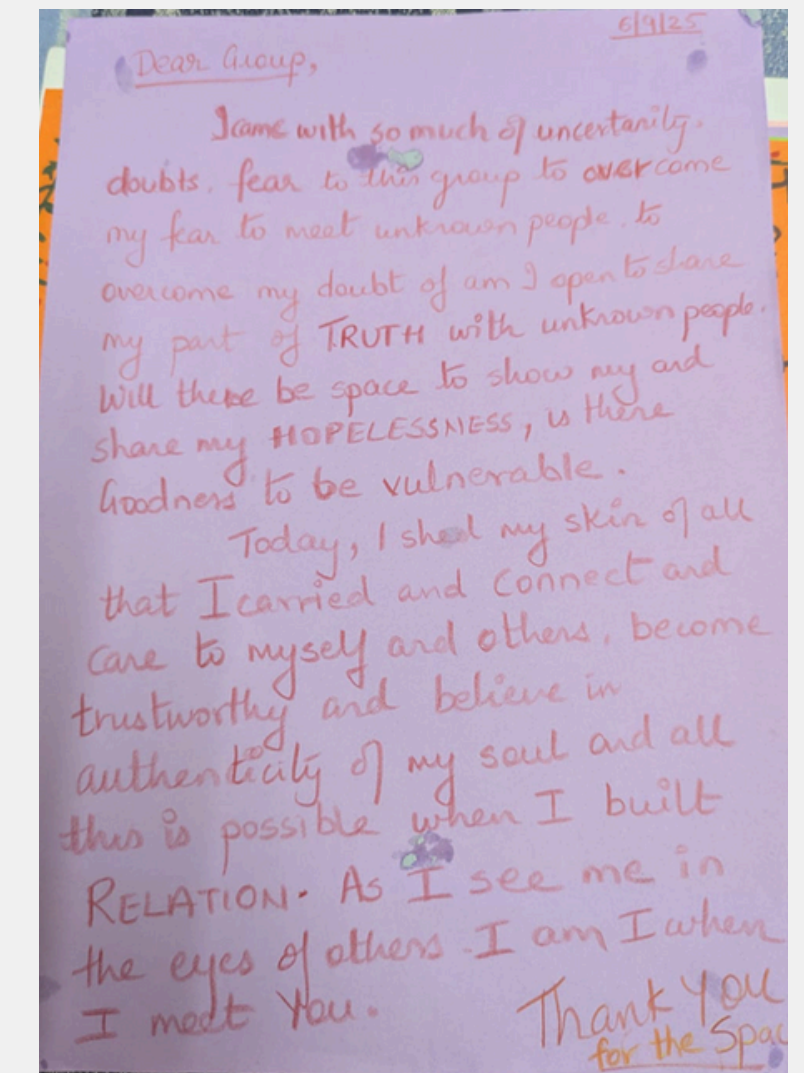 6/9/25
Dear Group,
I came with so much of uncertanity.
doubts, fear to this group to overcome
my fear to meet unknown people, to
overcome my doubt of am I open to share
my part of TRUTH with unknown people.
Will there be space to show my and
share my HOPELESSNESS, is there
Goodness to be vulnerable.
Today, I shed my skin of all
that I carried and connect and
care to myself and others, become
trustworthy and believe in
authenticity of my soul and all
this is possible when I built
RELATION. As I see me in
the eyes of others. I am I when
I meet You.
Thank You
for the Spac